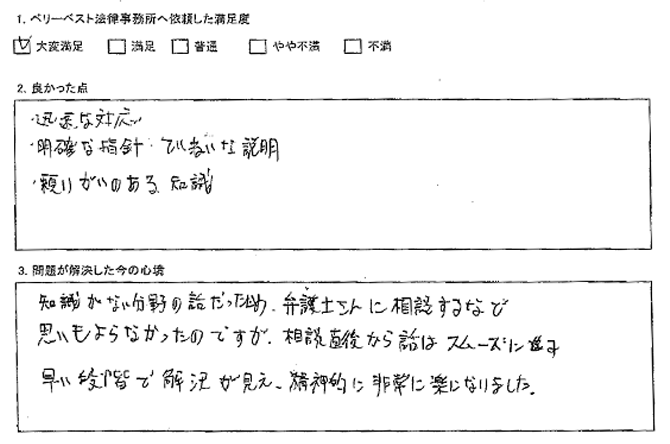 1. ベリーベスト法律事務所へ依頼した満足度
大変満足 満足 普通 やや不満 不満
2. 良かった点
・迅速な対応
・明確な指針・ていねいな説明
・頼りがいのある知識
3. 問題が解決した今の心境
知識がない分野の話だったため、弁護士さんに相談するなど
思いもよらなかったのですが、相談直後から話はスムーズに進み
早い段階で解決が見え、精神的に非常に楽になりました。